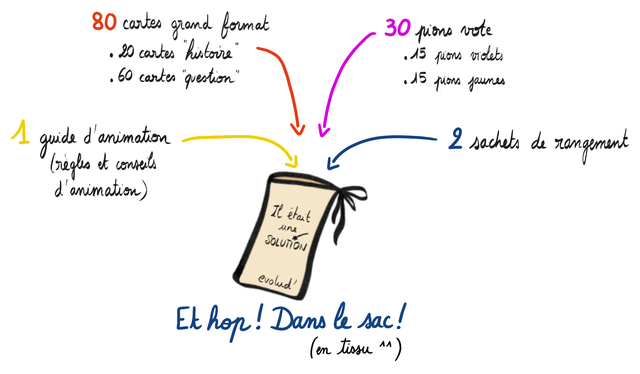 80 cartes grand format
. 20 cartes "histoire"
. 60 cartes "question"
30 pions vote
. 15 pions violets
. 15 pions jaunes
1 guide d'animation
(règles et conseils
d'animation)
2 sachets de rangement
Il était
une
SOLUTION
evolud'
Et hop! Dans le sac!
(en tissu ^^)